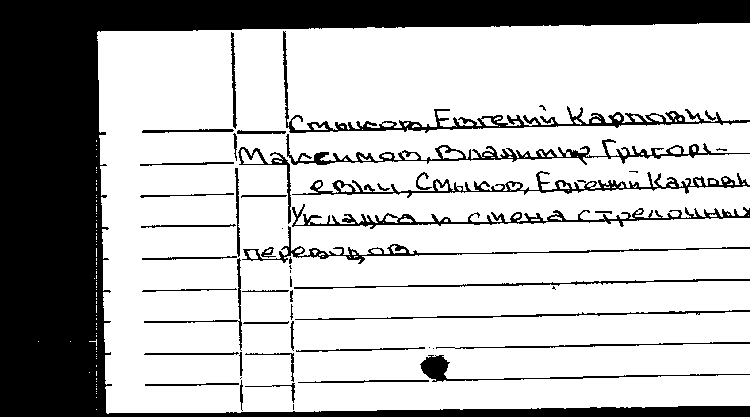 Смыков, Евгений Карпович.
Максимов, Владимир Григорь-
евич, Смыков, Евгений Карпови
Укладка и смена стрелочных
переводов.